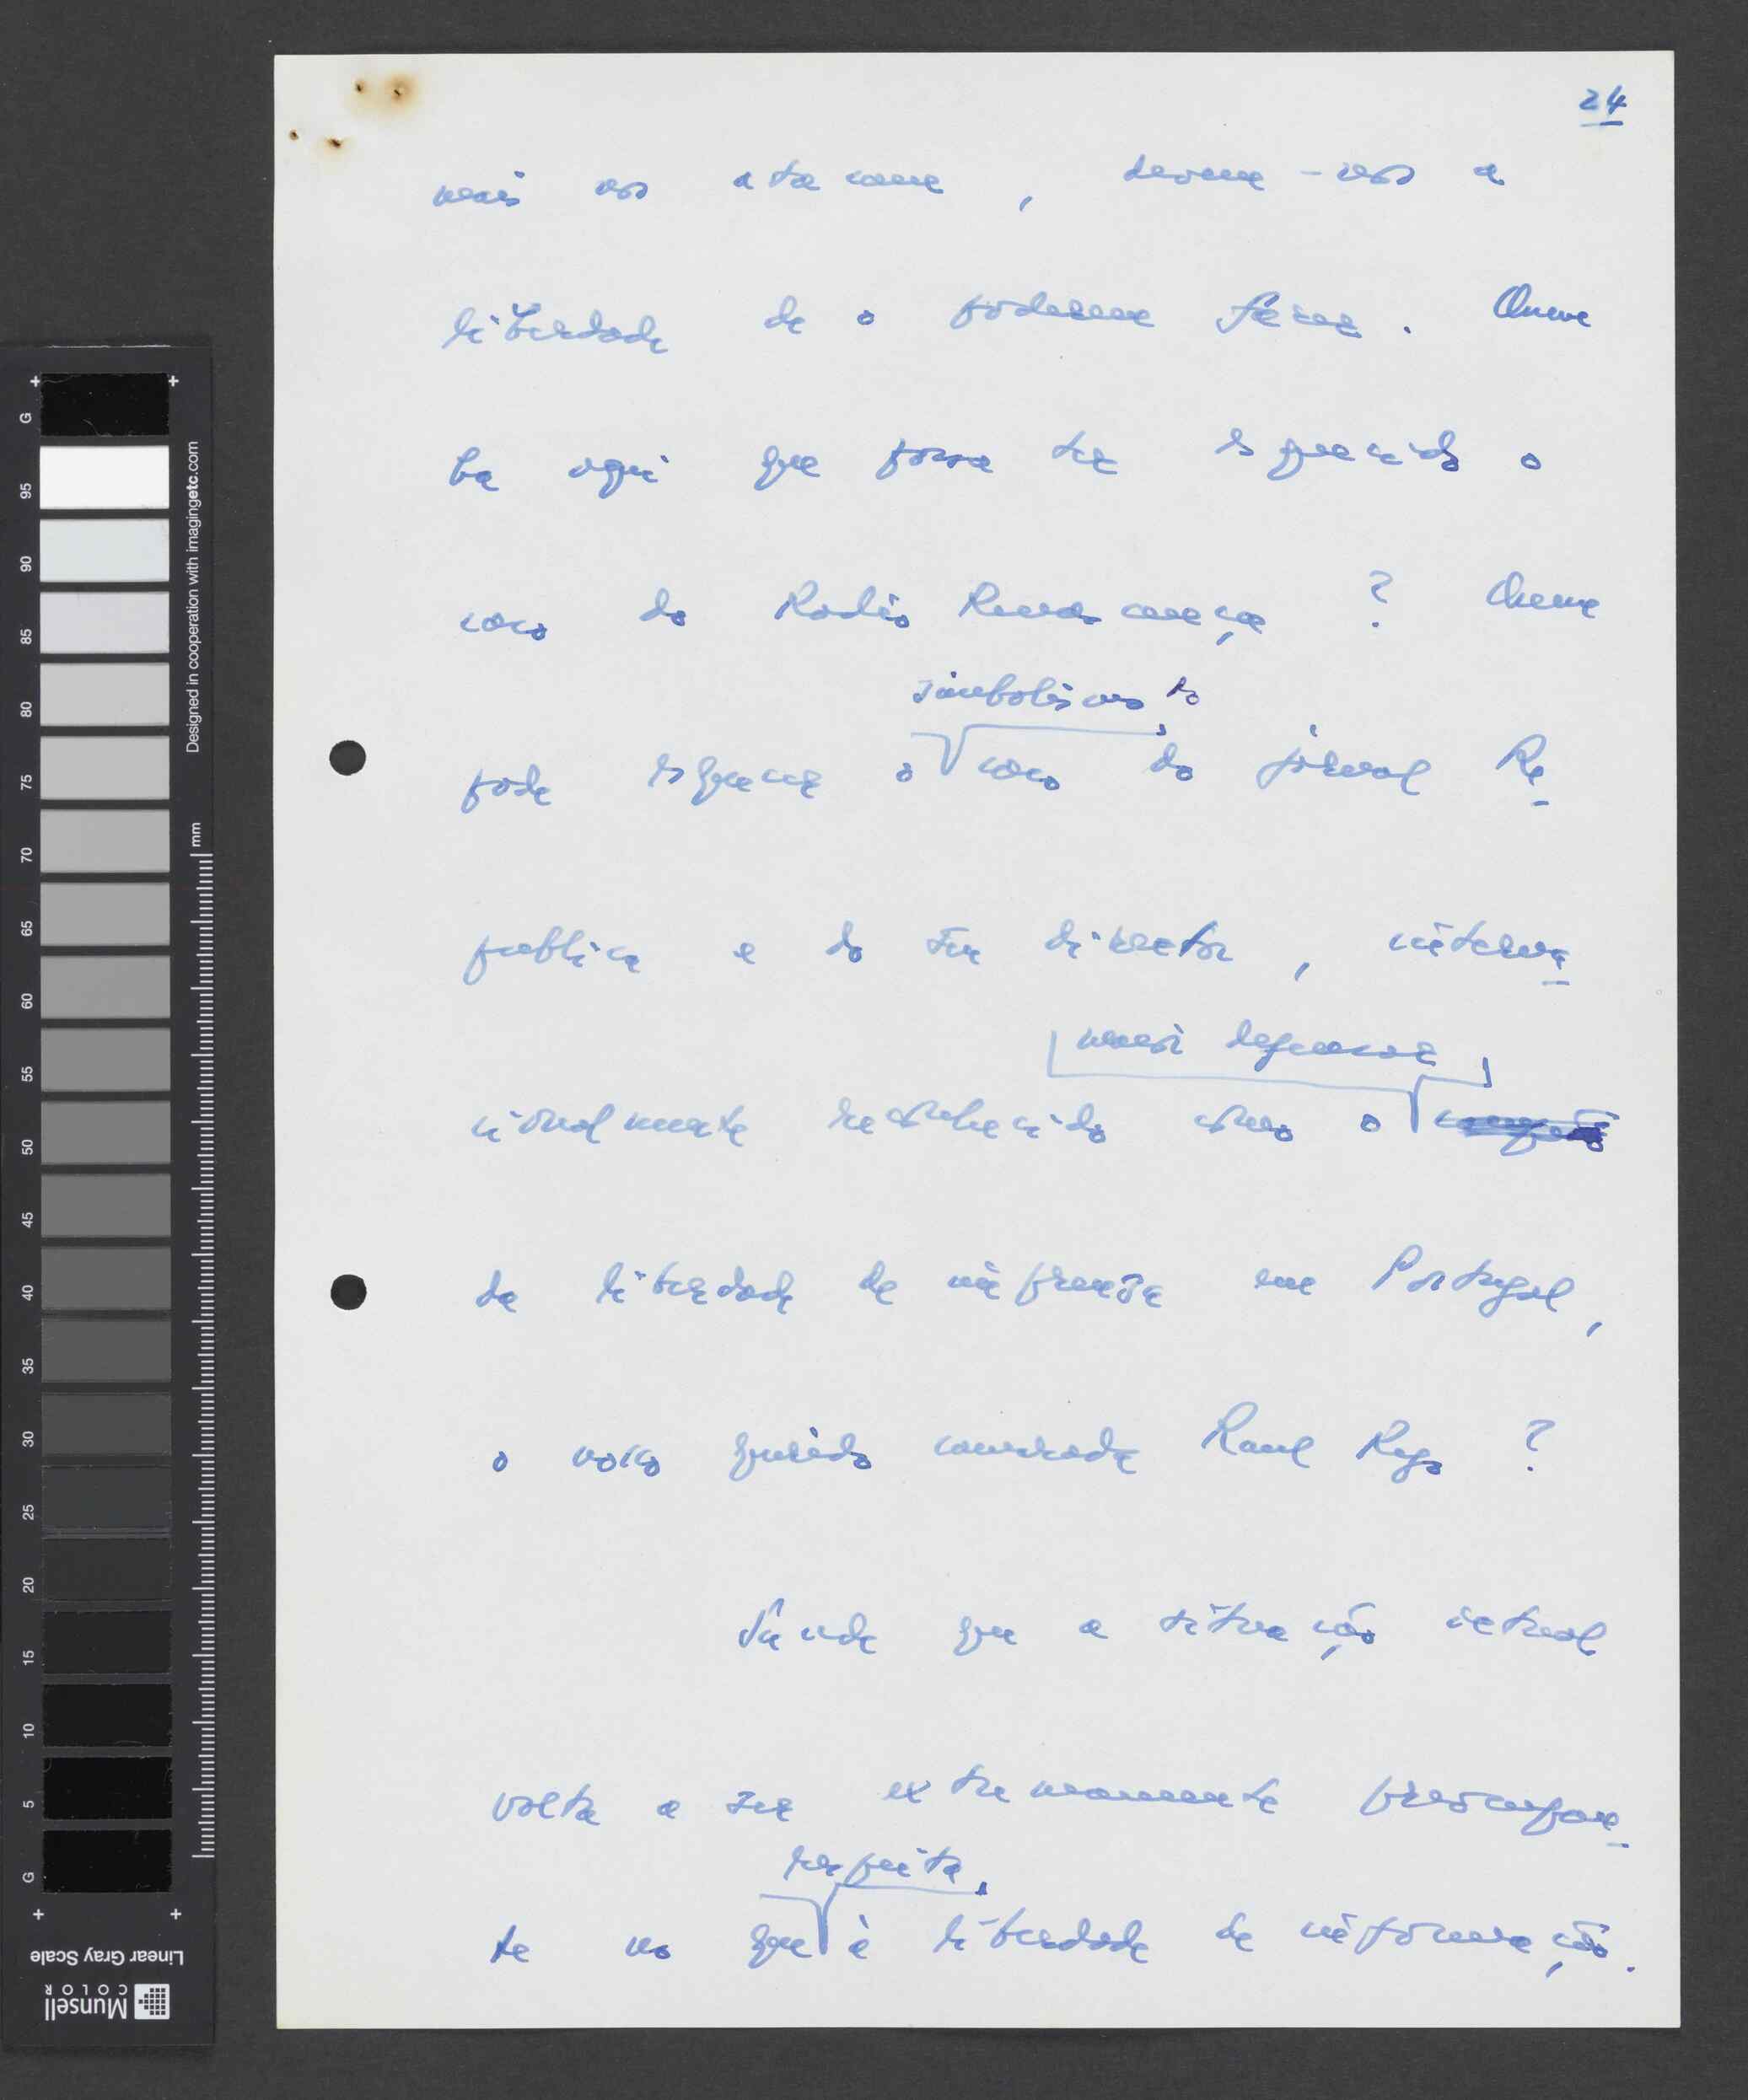 24
mais nos atacam, devem-nos a
liberdade de o poderem fazer. Quem
há aqui que possa ter esquecido o
caso da Rádio Renascença? Quem
simbólico,
pode esquecer o caso do jornal Re-
publica e do seu director, interna-
maior defensor
cionalmente reconhecido como o
da liberdade de imprensa em Portugal,
o nosso querido camarada Raul Rego?
Sucede que a situação actual
volta a ser extremamente preocupan-
respeita,
te no que à liberdade de informação.
G
95
90
85
80
75
70
65
60
55
50
45
40
35
30
25
20
15
10
5
G
mm
Designed in cooperation with imagingetc.com
Linear Gray Scale
Munsell
COLOR